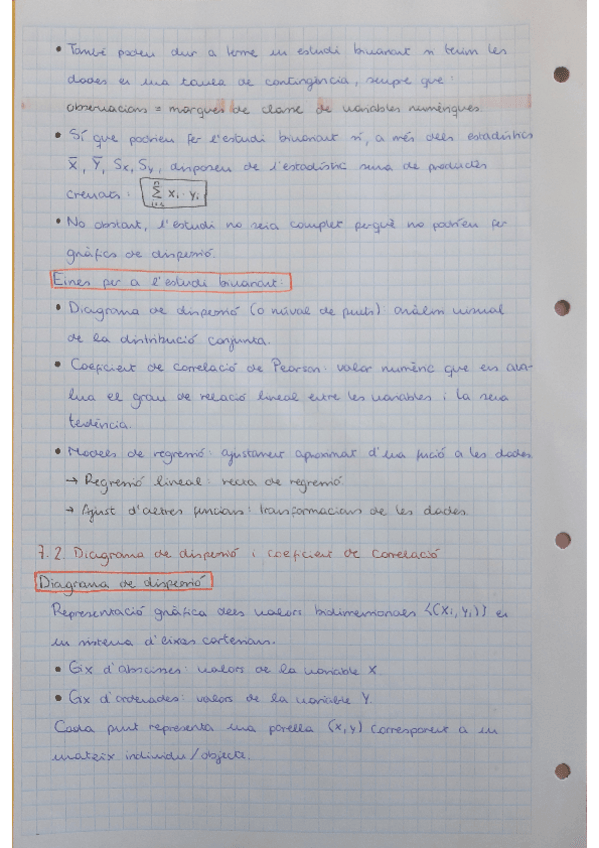 • També podem dur a terme un estudi bivariant si tenim les
dades en una taula de contingència, sempre que:
observacions = marques de classe de variables numèriques.
• Sí que podríem fer l'estudi bivariant si, a més dels estadístics
X̄, Ȳ, Sx, Sy, disposem de l'estadístic suma de productes
creuats: Σ xi · yi
• No obstant, l'estudi no seria complet perquè no podríem fer
gràfics de dispersió.
Eines per a l'estudi bivariant:
• Diagrama de dispersió (o núvol de punts): anàlisi visual
de la distribució conjunta.
• Coeficient de correlació de Pearson: valor numèric que ens ava-
lua el grau de relació lineal entre les variables i la seva
tendència.
• Models de regressió: ajustament aproximat d'una funció a les dades
→ Regressió lineal: recta de regressió
→ Ajust d'altres funcions: transformacions de les dades.
7.2. Diagrama de dispersió i coeficient de correlació
Diagrama de dispersió
Representació gràfica dels valors bidimensionals {(xi, yi)} en
un sistema d'eixos cartesians.
• Eix d'abscisses: valors de la variable X.
• Eix d'ordenades: valors de la variable Y.
Cada punt representa una parella (x,y) corresponent a un
mateix individu/objecte.